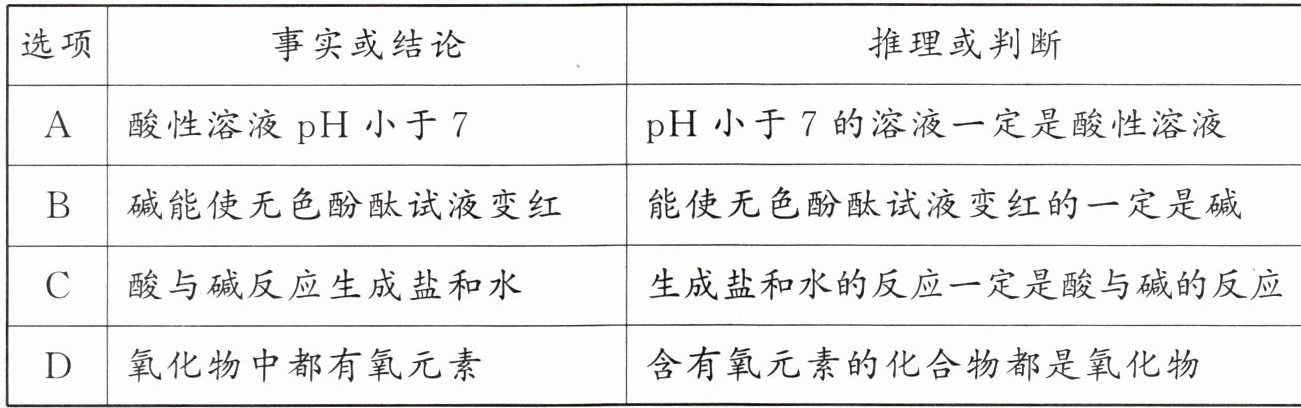 选项 事实或结论 推理或判断
A 酸性溶液 pH 小于 7 pH 小于 7 的溶液一定是酸性溶液
B 碱能使无色酚酞试液变红 能使无色酚酞试液变红的一定是碱
C 酸与碱反应生成盐和水 生成盐和水的反应一定是酸与碱的反应
D 氧化物中都有氧元素 含有氧元素的化合物都是氧化物